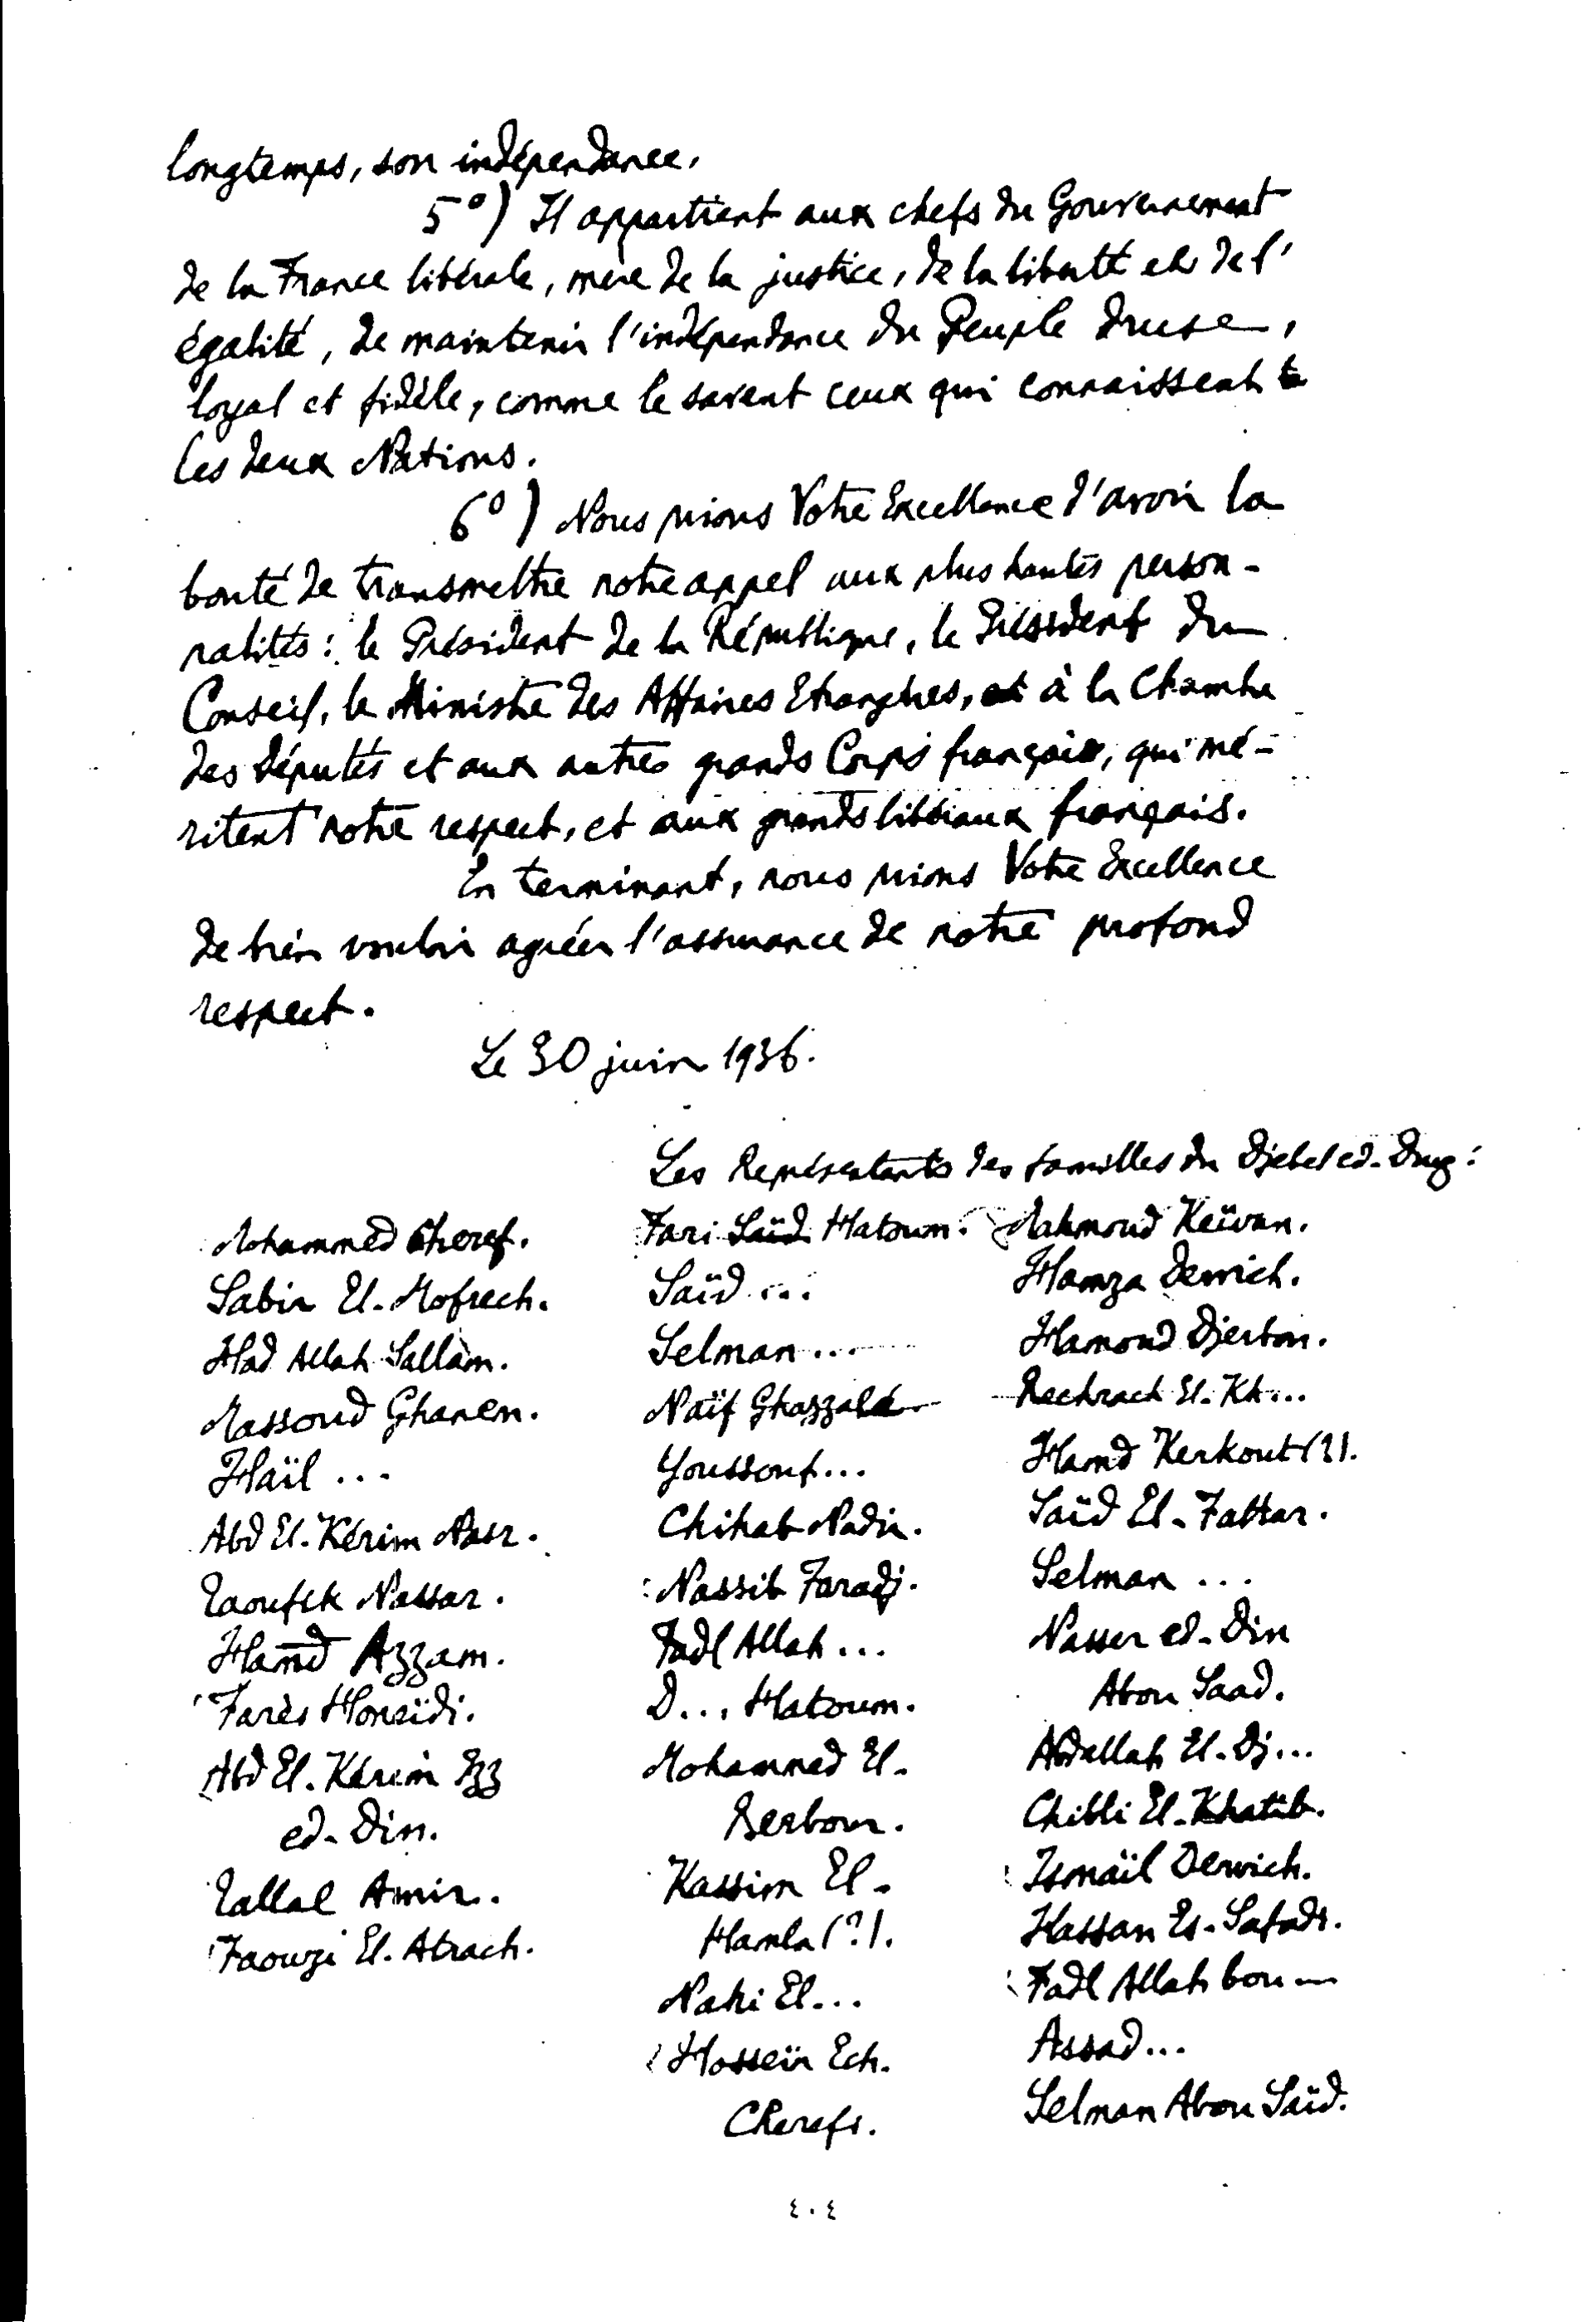 longtemps, son indépendance.
5°) Il appartient aux chefs du Gouvernement
de la France libérale, mère de la justice, de la liberté et de l'
égalité, de maintenir l'indépendance du Peuple druse,
loyal et fidèle, comme le savent ceux qui connaissent
les deux Nations.
6°) Nous prions Votre Excellence d'avoir la
bonté de transmettre notre appel aux plus hautes person-
nalités : le Président de la République, le Président du
Conseil, le Ministre des Affaires Etrangères, et à la Chambre
des Députés et aux autres grands Corps français, qui mé-
ritent notre respect, et aux grands libéraux français.
En terminant, nous prions Votre Excellence
de bien vouloir agréer l'assurance de notre profond
respect.
Le 30 juin 1936.
Les Représentants des familles du Djebel ed-Druz :
Mohammed Cheref.
Sabir El-Mofrech.
Had Allah Sallâm.
Massoud Ghanem.
Haïl ...
Abd El-Kérim Nasr.
Taoufik Nassar.
Hamd Azzam.
Farès Honeïdi.
Abd El-Kérim Ezz
ed-Din.
Tallal Amir.
Faouzi El-Atrach.
Fari Saïd Hatoum.
Saïd ...
Selman ...
Naïf Ghazzalé
Youssouf ...
Chihab Nadir.
Nassib Faradj.
Fadl Allah ...
D... Hatoum.
Mohammed El-
Berbour.
Kassim El-
Hamla (?).
Nahi El-...
Hosseïn Ech-
Cherefi.
Mahmoud Keïwan.
Hamza Derwich.
Hamoud Djerbou.
Rechrach El-Kh...
Hamd Kerkout (?).
Saïd El-Fattar.
Selman ...
Nasser ed-Din
Abou Saad.
Abdallah El-Dj...
Chibli El-Khatib.
Ismaïl Derwich.
Hassan Es-Safadi.
Fadl Allah bou...
Assad...
Selman Abou Saïd.
٤٠٤